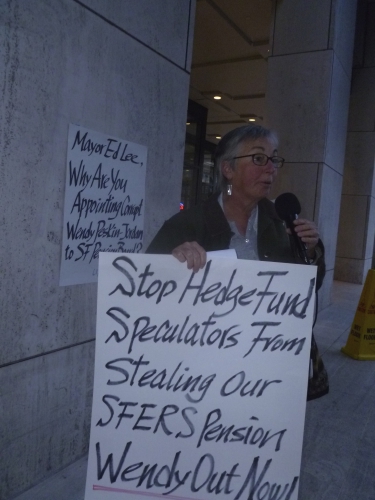 Mayor Ed Lee,
Why Are You
Appointing Corrupt
Wendy Paskin-Jordan
to SF Pension Board?
Stop Hedge Fund
Speculators From
Stealing Our
SFERS Pension
Wendy Out Now!